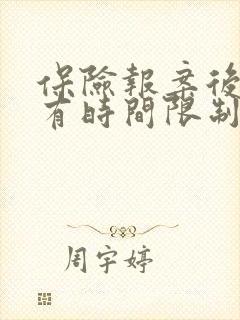 保險報案後
有時間限制
周宇婷